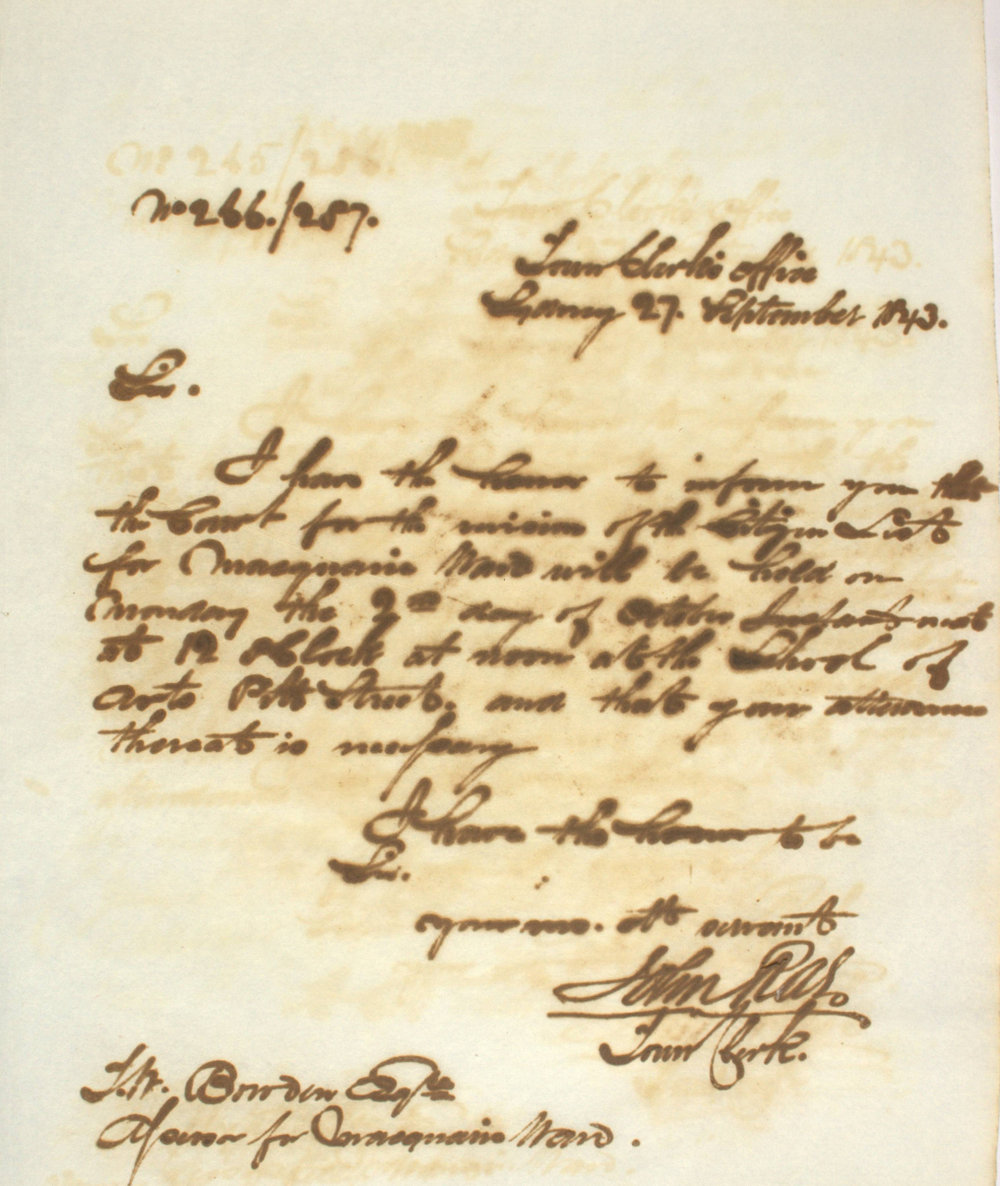 No 266./287.
Town Clerk's office
Sydney 27. September 1843.
Sir.
I have the honor to inform you that
the Court for the revision of the Citizen List
for Macquarie Ward will be held on
Monday the 9th day of October Instant next
at 12 oClock at noon at the School of
Arts Pitt Street. and that your attendance
thereat is necessary
I have the honor to be
Sir.
your mo. obt servant
John Rae
Town Clerk.
T.W. Bowden Esqre
Assessor for Macquarie Ward.